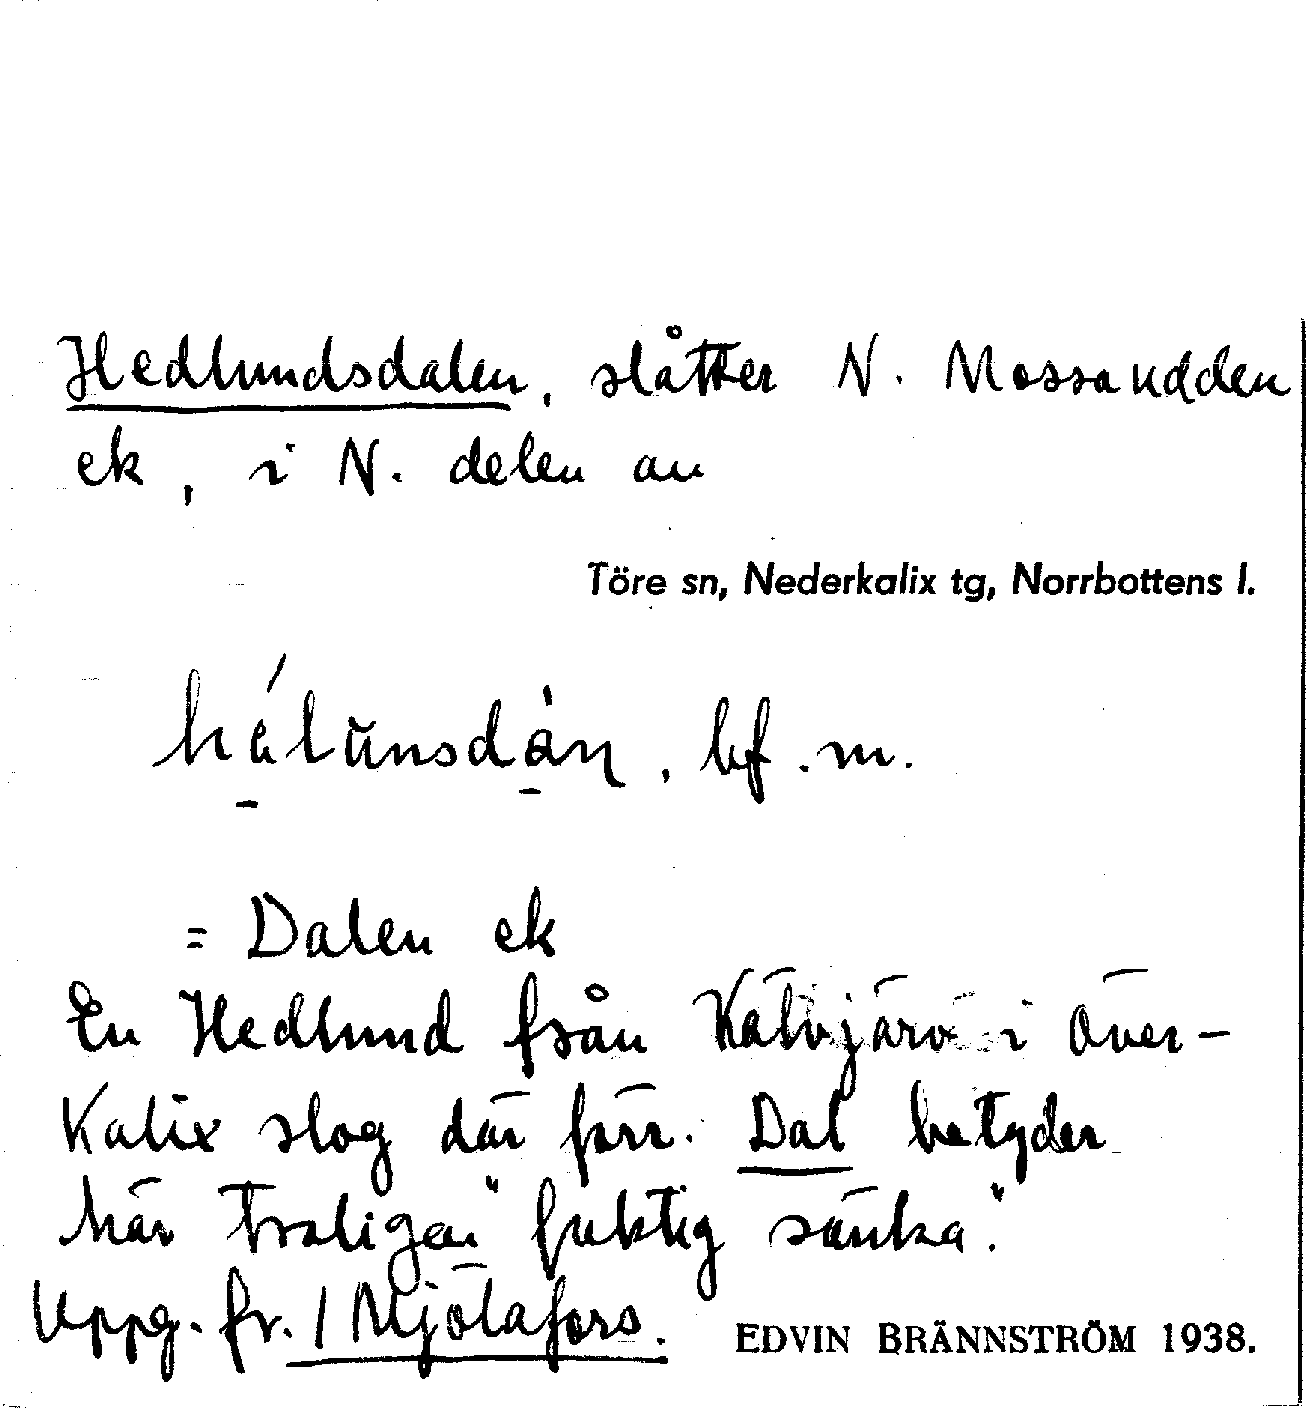 Hedlundsdalen, slåtter N. Mossaudden
ek, i N. delen av
Töre sn, Nederkalix tg, Norrbottens l.
bf. m.
= Dalen ek
En Hedlund från Kälvjärv i Över-
Kalix slog där förr. Dal betyder
här troligen "fuktig sänka."
Uppg. fr. / Mjölafors.
EDVIN BRÄNNSTRÖM 1938.